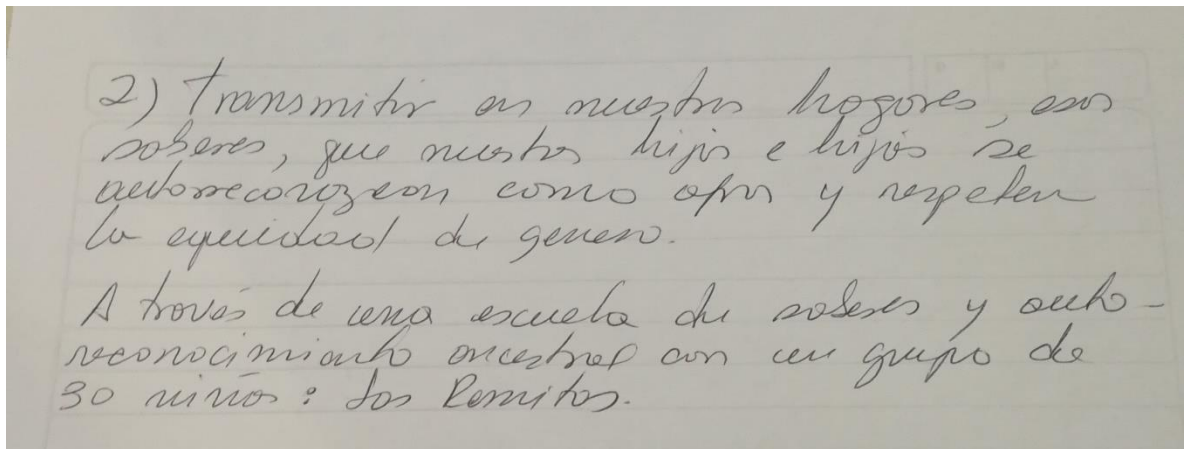 2) Transmitir en nuestros hogares, esos
saberes, que nuestros hijos e hijas se
autorreconozcan como afros y respeten
la equidad de genero.
A través de una escuela de saberes y auto-
reconocimiento ancestral con un grupo de
30 niños: Los